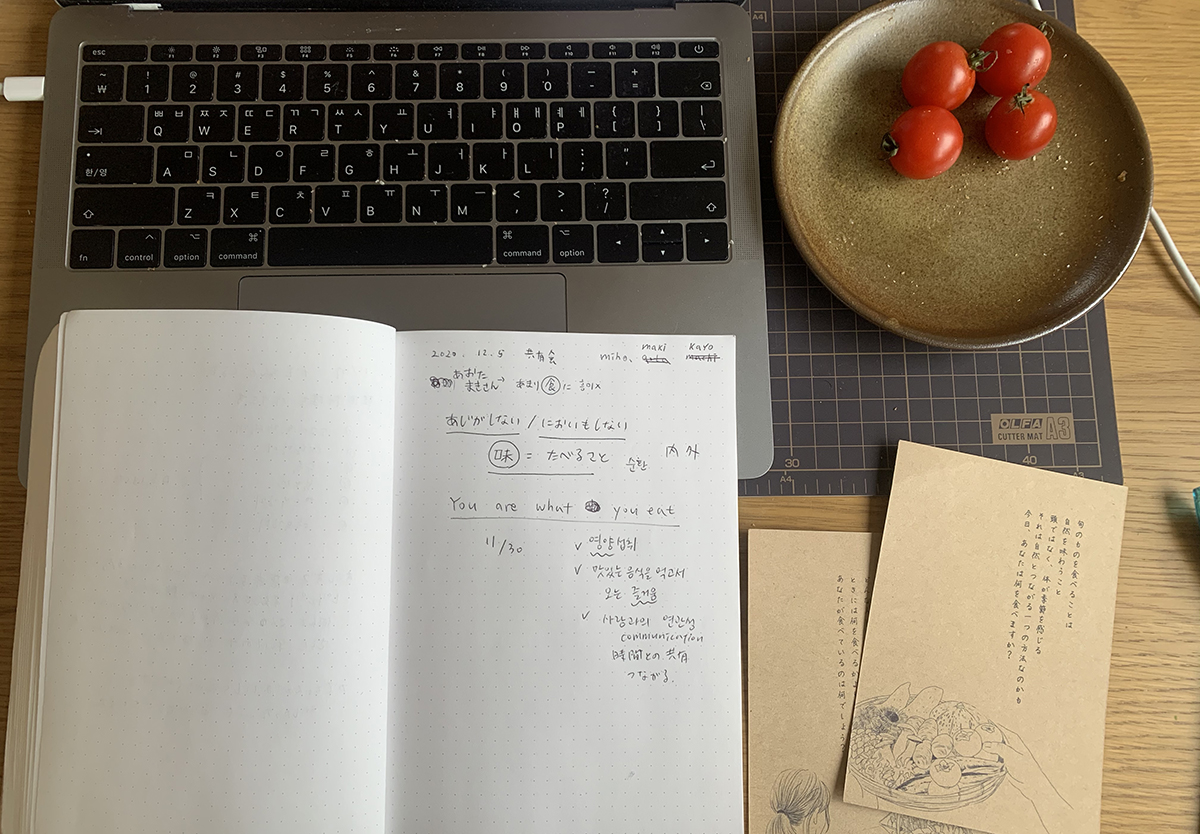 esc F1 F2 F3 F4 F5 F6 F7 F8 F9 F10 F11 F12
~ ₩ ! 1 @ 2 # 3 $ 4 % 5 ^ 6 & 7 * 8 ( 9 ) 0 _ - + =
ㅃ ㅂ Q ㅉ ㅈ W ㄸ ㄷ E ㄲ ㄱ R ㅆ ㅅ T ㅛ Y ㅕ U ㅑ I ㅒ ㅐ O ㅖ ㅔ P { [ } ] | \
한/영 ㅁ A ㄴ S ㅇ D ㄹ F ㅎ G ㅗ H ㅓ J ㅏ K ㅣ L : ; " '
ㅋ Z ㅌ X ㅊ C ㅍ V ㅠ B ㅜ N ㅡ M < , > . ? /
fn control option command command option
2020. 12. 5 共有会 miho, maki kayo
あおた
まきさん → あまり 食 に
あじがしない / においもしない
味 = たべること 순환 内 外
You are what you eat
11/30 ✓ 영양섭취
✓ 맛있는 음식을 먹고서
오는 즐거움
✓ 사람과의 연관성
communication
時間との共有
つながる.
OLFA A3
CUTTER MAT
30 40
A4 A4
旬のものを食べることは
自然を味わうこと
頭ではなく、体が季節を感じる
それは自然とつながる一つの方法なのかも
今日、あなたは何を食べますか?
ときには何を食べるか
あなたが食べているのは何でしょう